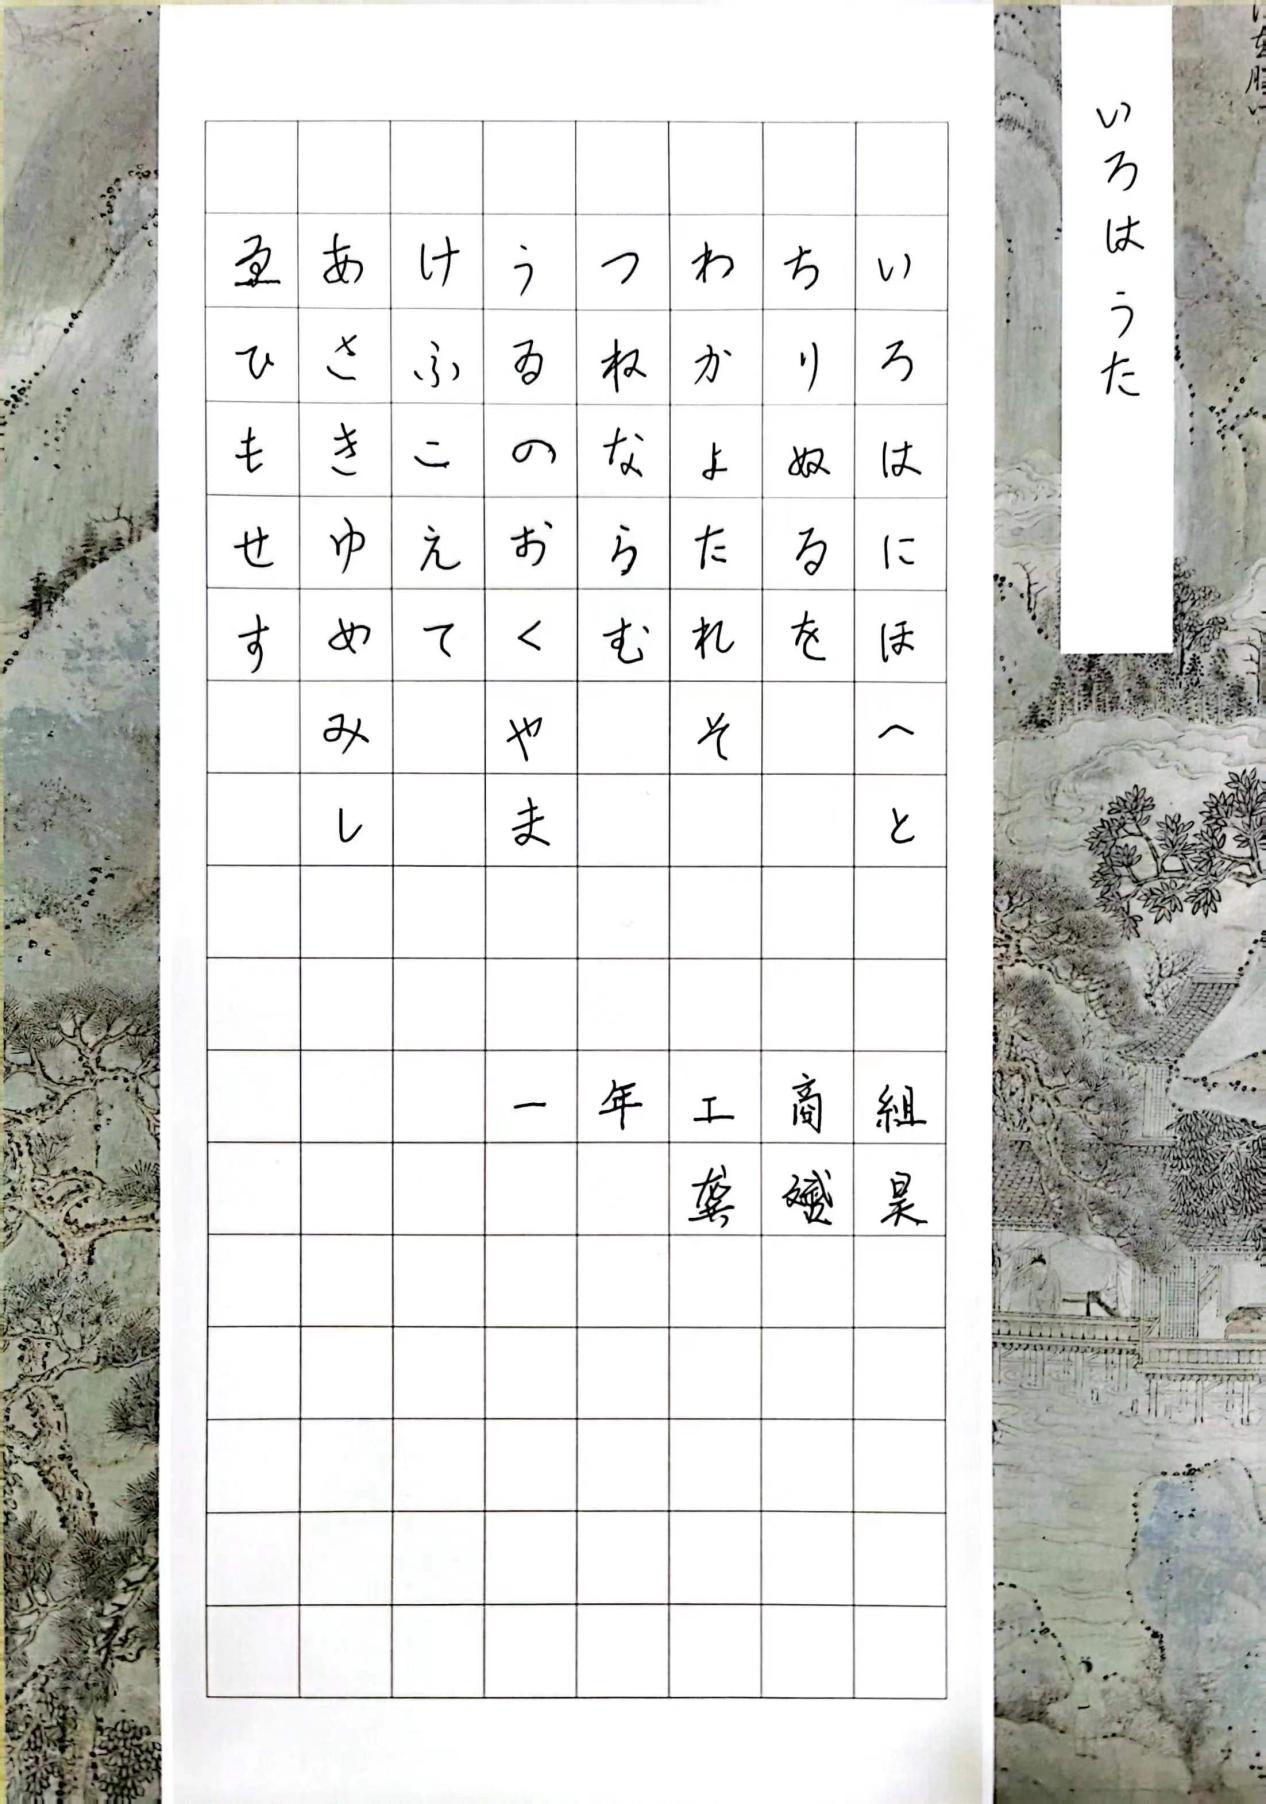 いろはうた
いろはにほへと
ちりぬるを
わかよたれそ
つねならむ
うゐのおくやま
けふこえて
あさきゆめみし
ゑひもせす
一年工商組
龔昊